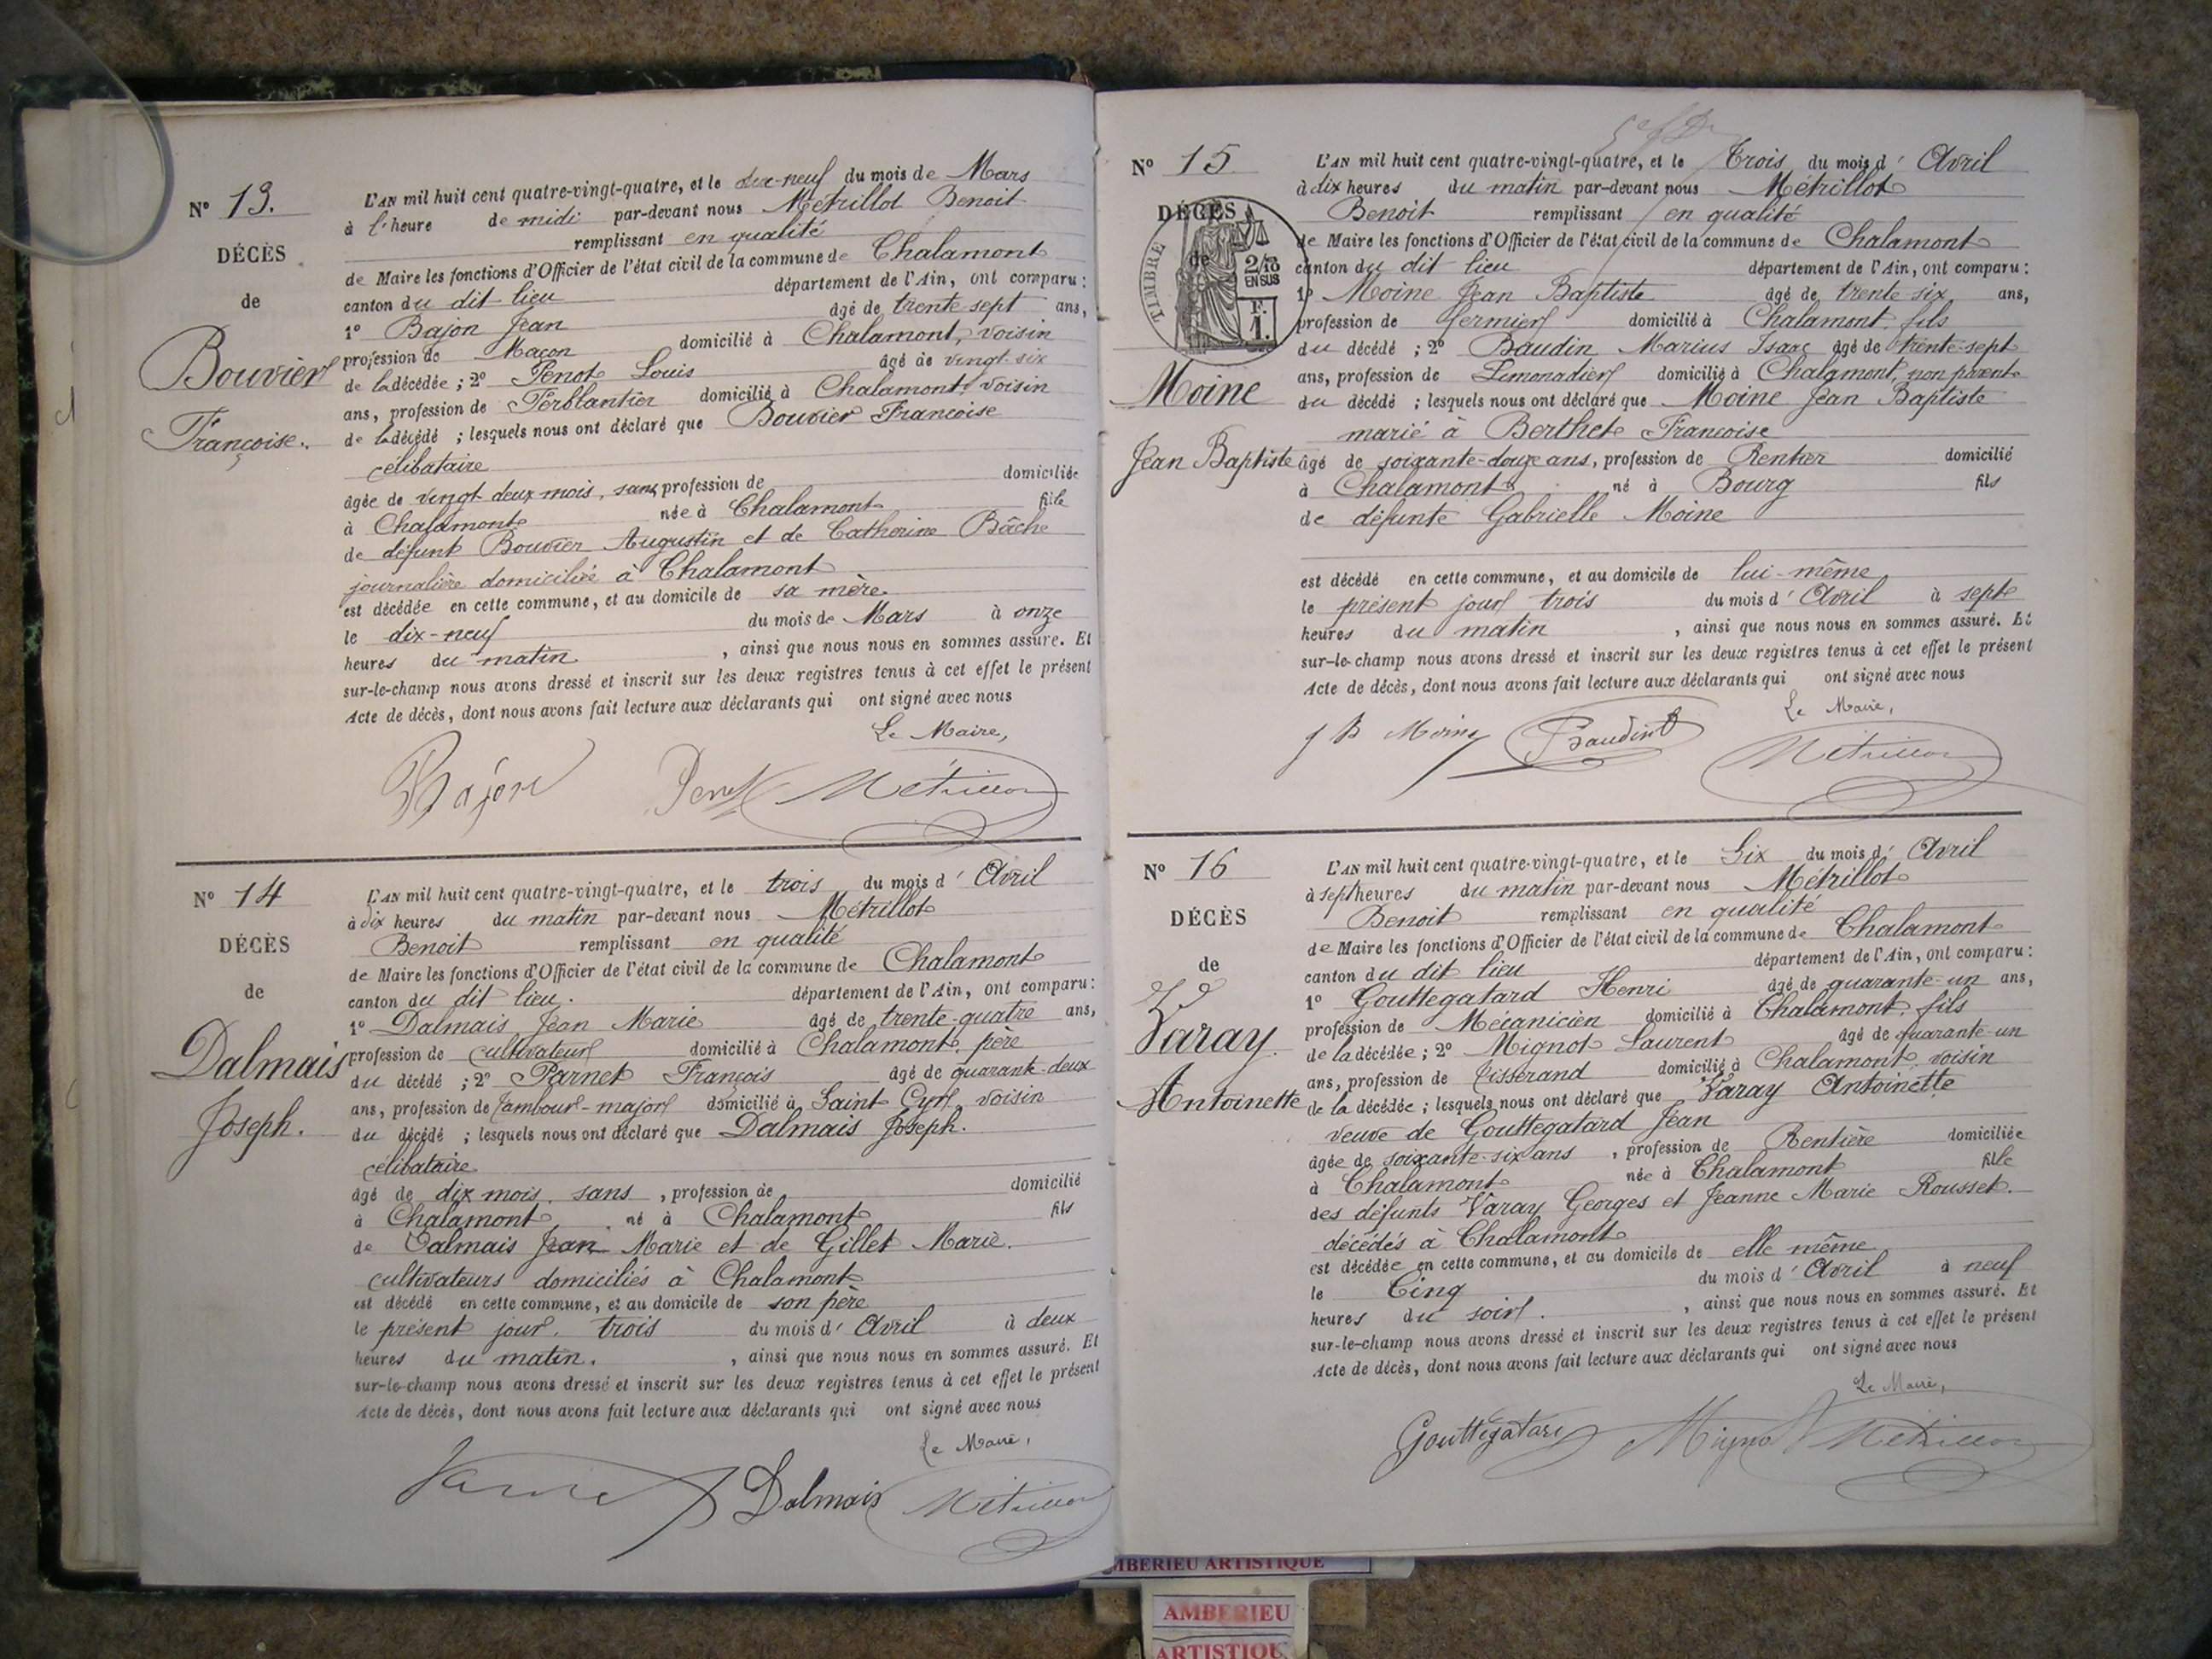 Nº 13.
DÉCÈS
de
Bouvier
Françoise.
L'AN mil huit cent quatre-vingt-quatre, et le dix-neuf du mois de Mars
à l'heure de midi par-devant nous Métrillot Benoit
remplissant en qualité
de Maire les fonctions d'Officier de l'état civil de la commune de Chalamont
canton du dit lieu département de l'Ain, ont comparu :
1º Bajon Jean âgé de trente sept ans,
profession de Maçon domicilié à Chalamont, voisin
de la décédée ; 2º Penot Louis âgé de vingt-six
ans, profession de Ferblantier domicilié à Chalamont, voisin
de la décédé ; lesquels nous ont déclaré que Bouvier Françoise
célibataire
âgée de vingt deux mois, sans profession de domiciliée
à Chalamont née à Chalamont fille
de défunt Bouvier Augustin et de Catherine Bâche
journalière domiciliée à Chalamont
est décédée en cette commune, et au domicile de sa mère
le dix-neuf du mois de Mars à onze
heures du matin , ainsi que nous nous en sommes assuré. Et
sur-le-champ nous avons dressé et inscrit sur les deux registres tenus à cet effet le présent
Acte de décès, dont nous avons fait lecture aux déclarants qui ont signé avec nous
Le Maire,
Bajon Penot Métrillot
Nº 14
DÉCÈS
de
Dalmais
Joseph.
L'AN mil huit cent quatre-vingt-quatre, et le trois du mois d' Avril
à dix heures du matin par-devant nous Métrillot
Benoit remplissant en qualité
de Maire les fonctions d'Officier de l'état civil de la commune de Chalamont
canton du dit lieu. département de l'Ain, ont comparu :
1º Dalmais Jean Marie âgé de trente-quatre ans,
profession de cultivateur domicilié à Chalamont, père
du décédé ; 2º Parnet François âgé de quarante-deux
ans, profession de Tambour-major domicilié à Saint Cyr, voisin
du décédé ; lesquels nous ont déclaré que Dalmais Joseph.
célibataire
âgé de dix mois, sans , profession de domicilié
à Chalamont né à Chalamont fils
de Dalmais Jean Marie et de Gillet Marie.
cultivateurs domiciliés à Chalamont
est décédé en cette commune, et au domicile de son père
le présent jour, trois du mois d' Avril à deux
heures du matin. , ainsi que nous nous en sommes assuré. Et
sur-le-champ nous avons dressé et inscrit sur les deux registres tenus à cet effet le présent
Acte de décès, dont nous avons fait lecture aux déclarants qui ont signé avec nous
Le Maire,
Dalmais Métrillot
Nº 15
DÉCÈS
de
TIMBRE
2/10
EN SUS
F.
1.
Moine
Jean Baptiste
L'AN mil huit cent quatre-vingt-quatre, et le Trois du mois d' Avril
à dix heures du matin par-devant nous Métrillot
Benoit remplissant en qualité
de Maire les fonctions d'Officier de l'état civil de la commune de Chalamont
canton du dit lieu département de l'Ain, ont comparu :
1º Moine Jean Baptiste âgé de trente six ans,
profession de fermier domicilié à Chalamont, fils
du décédé ; 2º Baudin Marius Isaac âgé de trente-sept
ans, profession de Limonadier domicilié à Chalamont, non parent
du décédé ; lesquels nous ont déclaré que Moine Jean Baptiste
marié à Berthet Françoise
âgé de soixante-douze ans, profession de Rentier domicilié
à Chalamont né à Bourg fils
de défunte Gabrielle Moine
est décédé en cette commune, et au domicile de lui-même
le présent jour trois du mois d' Avril à sept
heures du matin , ainsi que nous nous en sommes assuré. Et
sur-le-champ nous avons dressé et inscrit sur les deux registres tenus à cet effet le présent
Acte de décès, dont nous avons fait lecture aux déclarants qui ont signé avec nous
Le Maire,
J B Moine Baudin Métrillot
Nº 16
DÉCÈS
de
Vve
Varay
Antoinette
L'AN mil huit cent quatre-vingt-quatre, et le Six du mois d' Avril
à sept heures du matin par-devant nous Métrillot
Benoit remplissant en qualité
de Maire les fonctions d'Officier de l'état civil de la commune de Chalamont
canton du dit lieu département de l'Ain, ont comparu :
1º Gouttegatard Henri âgé de quarante-un ans,
profession de Mécanicien domicilié à Chalamont, fils
de la décédée ; 2º Mignot Laurent âgé de quarante-un
ans, profession de Tisserand domicilié à Chalamont, voisin
de la décédée ; lesquels nous ont déclaré que Varay Antoinette
veuve de Gouttegatard Jean
âgée de soixante-six ans , profession de Rentière domiciliée
à Chalamont née à Chalamont fille
des défunts Varay Georges et Jeanne Marie Rousset.
décédés à Chalamont
est décédée en cette commune, et au domicile de elle même
le Cinq du mois d' Avril à neuf
heures du soir. , ainsi que nous nous en sommes assuré. Et
sur-le-champ nous avons dressé et inscrit sur les deux registres tenus à cet effet le présent
Acte de décès, dont nous avons fait lecture aux déclarants qui ont signé avec nous
Le Maire,
Gouttegatard Mignot Métrillot
AMBERIEU ARTISTIQUE
AMBERIEU
ARTISTIQU